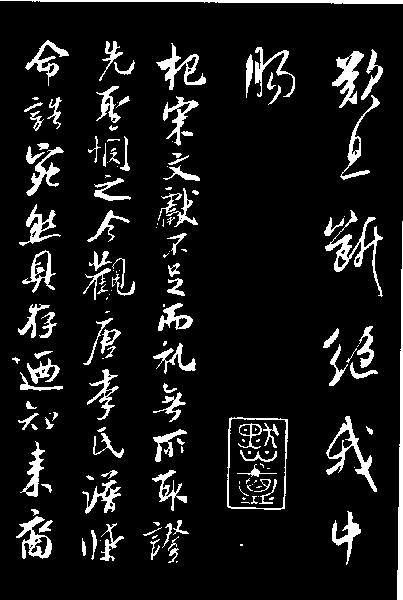 歎且斷絕我中
腸
杞宋文獻不足而礼無所取證
先聖憫之今觀唐李氏譜牒
命誥宛然具存迺知來裔